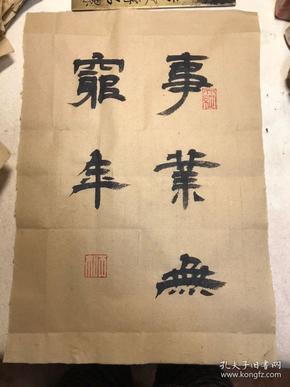 事業無
窮年
孔夫子旧书网
www.kongfz.com